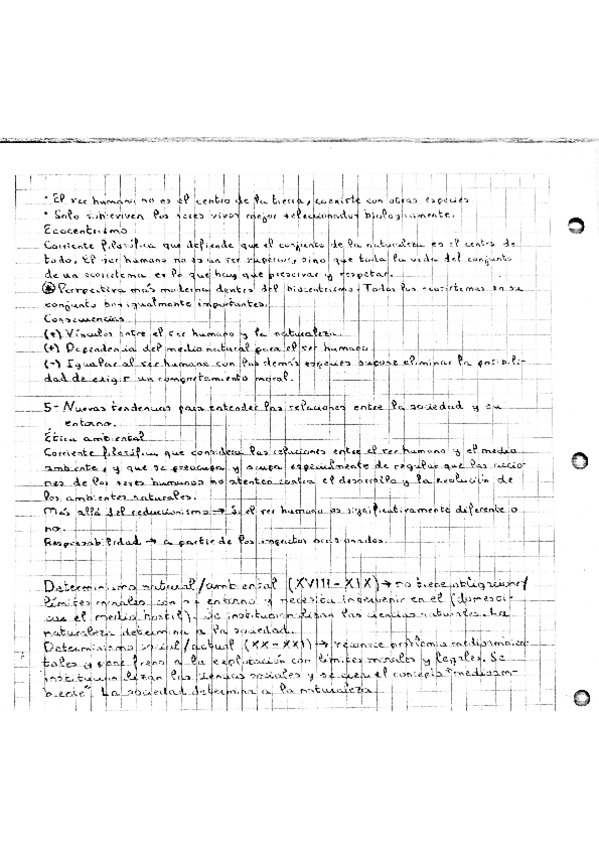 * El ser humano no es el centro de la tierra, coexiste con otras especies.
* Solo sobreviven los seres vivos mejor seleccionados biologicamente.
Ecocentrismo
Corriente filosófica que defiende que el conjunto de la naturaleza es el centro de
todo. El ser humano no es un ser superior, sino que toda la vida del conjunto
de un ecosistema es lo que hay que preservar y respetar.
* Perspectiva más moderna dentro del biocentrismo. Todos los ecosistemas en su
conjunto son igualmente importantes.
Consecuencias
(+) Vínculos entre el ser humano y la naturaleza.
(+) Dependencia del medio natural para el ser humano
(-) Igualar al ser humano con las demás especies supone eliminar la posibili-
dad de exigir un comportamiento moral.
5- Nuevas tendencias para entender las relaciones entre la sociedad y su
entorno.
Ética ambiental
Corriente filosófica que considera las relaciones entre el ser humano y el medio
ambiente, y que se preocupa y ocupa especialmente de regular que las accio-
nes de los seres humanos no atenten contra el desarrollo y la evolución de
los ambientes naturales.
Más allá del reduccionismo → Si el ser humano es significativamente diferente o
no.
Responsabilidad → a partir de los impactos ocasionados.
Determinismo natural/ambiental (XVIII-XIX) → no tiene obligaciones/
límites morales con su entorno y necesita intervenir en el (domesti-
car el medio hostil). Se institucionalizan las ciencias naturales. La
naturaleza determina a la sociedad.
Determinismo social/actual (XX-XXI) → reconoce problemas medioambien-
tales y pone freno a la explotación con límites morales y legales. Se
institucionalizan las ciencias sociales y se crea el concepto "medioam-
biente". La sociedad determina a la naturaleza